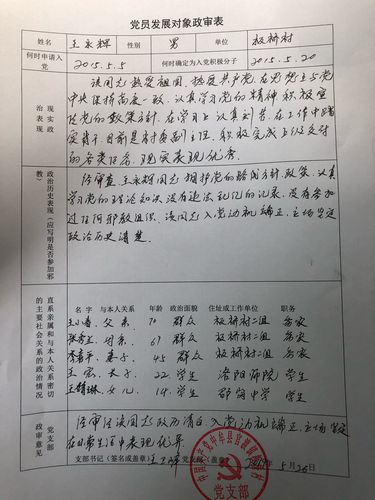 党员发展对象政审表
姓名 王永辉 性别 男 单位 板桥村
何时申请入党 2015.5.5 何时确定为入党积极分子 2015.5.20
现实政治表现
该同志热爱祖国，热爱共产党，在思想上与党
中央保持高度一致，认真学习党的精神，积极宣
传党的政策方针，在学习上认真刻苦，在工作中踏
实肯干，目前是村委副主任，积极完成上级交付
的各类任务，现实表现优秀。
政治历史表现（应写明是否参加邪教）
经审查，王永辉同志拥护党的路线方针政策，认真
学习党的理论知识，没有违法记记的记录，没有参加
过任何邪教组织，该同志入党动机端正，立场坚定
政治历史清楚。
直系亲属和与本人关系密切的主要社会关系的政治情况
名字 与本人关系 年龄 政治面貌 住址或工作单位 职务
父亲 70 群众 板桥村二组 务农
母亲 67 群众 板桥村二组 务农
妻子 45 群众 板桥村二组 务农
王 长子 22 学生 洛阳师院 学生
王 女儿 14 学生 中学 学生
党支部政审意见
经审 该同志政历清白，入党动机端正，立场坚定
在日常生活中表现优异。
支部书记（签名或盖章） 党支部（盖章） 5月26日
党支部